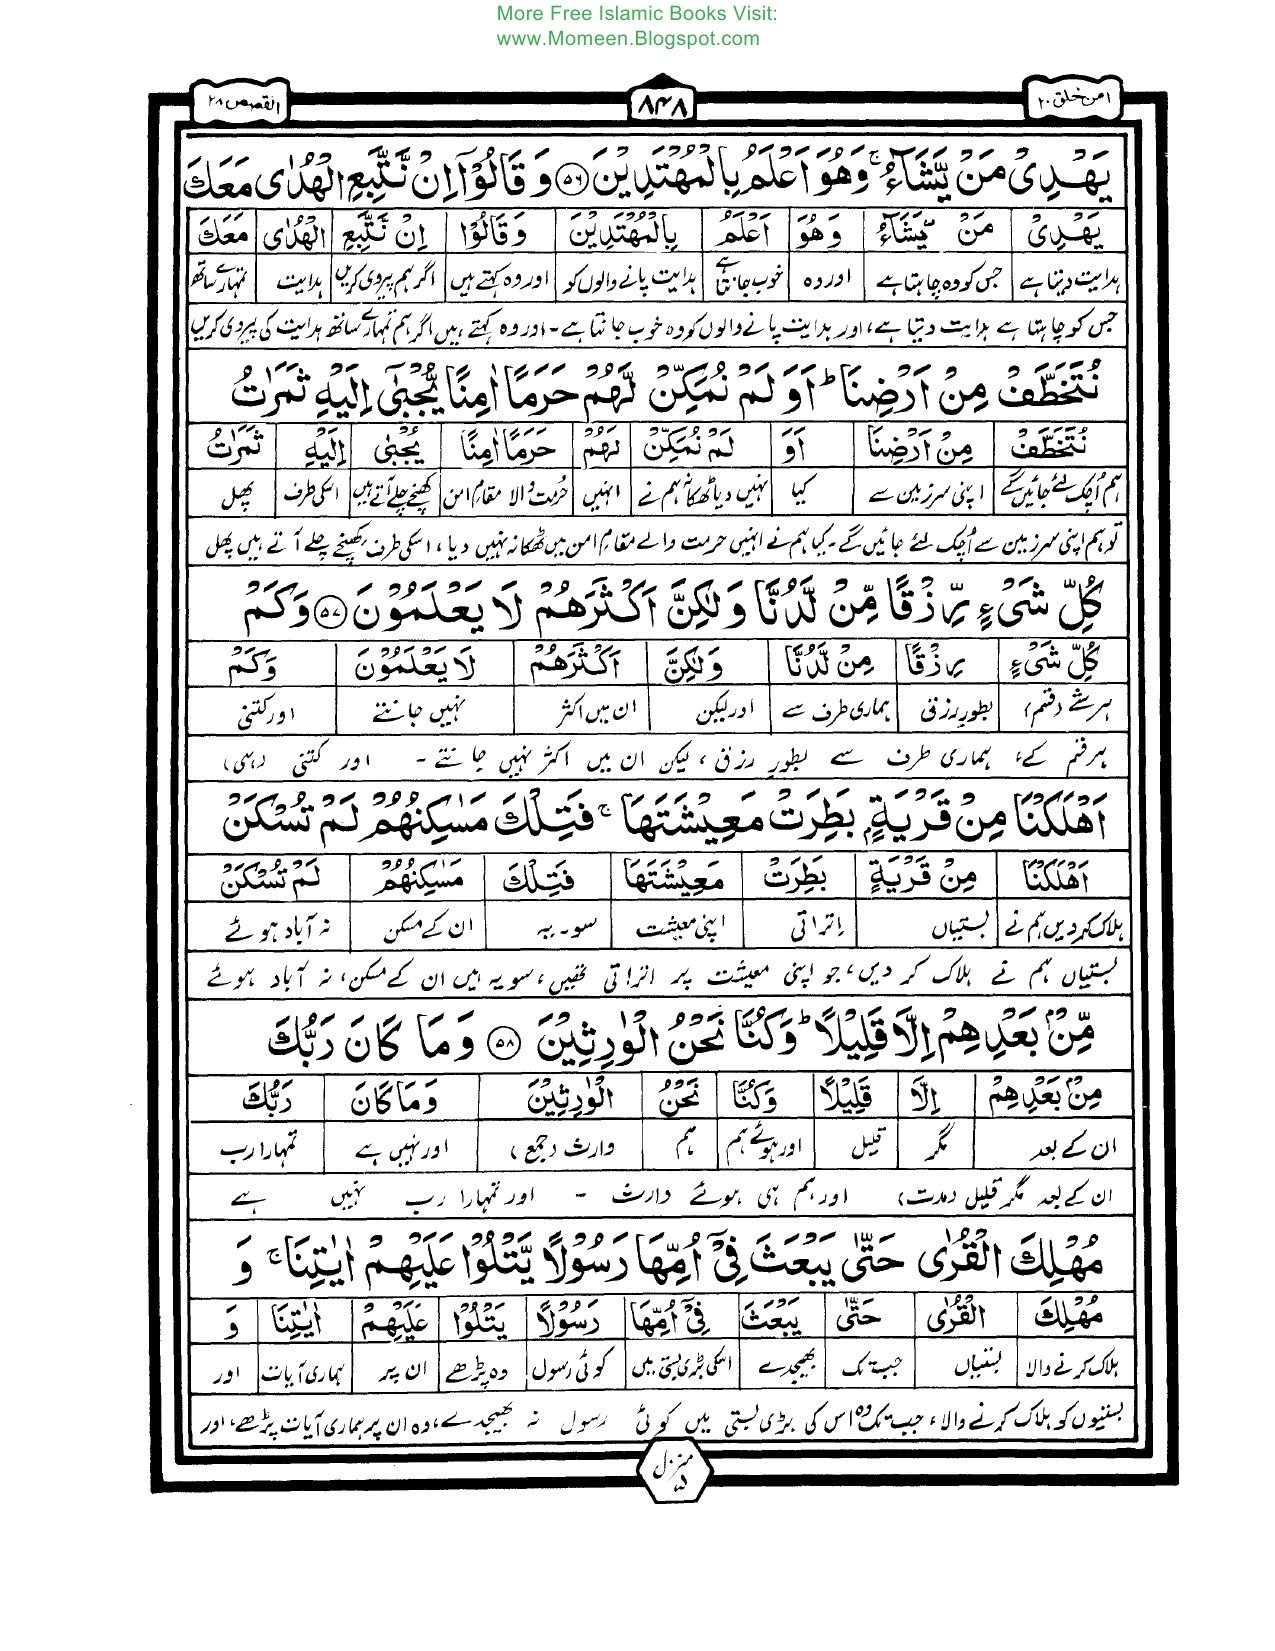 More Free Islamic Books Visit:
www.Momeen.Blogspot.com
امن خلق ۲۰
۸۴۸
القصص ۲۸
يَهْدِىْ مَنْ يَّشَآءُ ۚ وَهُوَ اَعْلَمُ بِالْمُهْتَدِيْنَ ۵۶ وَ قَالُوْٓا اِنْ نَّتَّبِعِ الْهُدٰى مَعَكَ
يَهْدِىْ مَنْ يَّشَآءُ وَهُوَ اَعْلَمُ بِالْمُهْتَدِيْنَ وَقَالُوْٓا اِنْ نَّتَّبِعِ الْهُدٰى مَعَكَ
ہدایت دیتا ہے جس کو وہ چاہتا ہے اور وہ خوب جانتا ہے ہدایت پانے والوں کو اور وہ کہتے ہیں اگر ہم پیروی کریں ہدایت تمہارے ساتھ
جس کو چاہتا ہے ہدایت دیتا ہے، اور ہدایت پانے والوں کو وہ خوب جانتا ہے۔ اور وہ کہتے ہیں اگر ہم تمہارے ساتھ ہدایت کی پیروی کریں
نُتَخَطَّفْ مِنْ اَرْضِنَا ؕ اَوَ لَمْ نُمَكِّنْ لَّهُمْ حَرَمًا اٰمِنًا يُّجْبٰٓى اِلَيْهِ ثَمَرٰتُ
نُتَخَطَّفْ مِنْ اَرْضِنَا اَوَ لَمْ نُمَكِّنْ لَهُمْ حَرَمًا اٰمِنًا يُجْبٰٓى اِلَيْهِ ثَمَرٰتُ
ہم اُچک لئے جائیں گے اپنی سرزمین سے کیا نہیں دیا ٹھکانہ ہم نے انہیں حرمت والا مقامِ امن کھنچے چلے آتے ہیں اسکی طرف پھل
تو ہم اپنی سرزمین سے اُچک لئے جائیں گے۔ کیا ہم نے انہیں حرمت والے مقامِ امن میں ٹھکانہ نہیں دیا، اسکی طرف کھنچے چلے آتے ہیں پھل
كُلِّ شَىْءٍ رِّزْقًا مِّنْ لَّدُنَّا وَلٰكِنَّ اَكْثَرَهُمْ لَا يَعْلَمُوْنَ ۵۷ وَكَمْ
كُلِّ شَىْءٍ رِزْقًا مِنْ لَّدُنَّا وَلٰكِنَّ اَكْثَرَهُمْ لَا يَعْلَمُوْنَ وَكَمْ
ہر شے (قسم) بطور رزق ہماری طرف سے اور لیکن ان میں اکثر نہیں جانتے اور کتنی
ہر قسم کے، ہماری طرف سے بطور رزق، لیکن ان میں اکثر نہیں جانتے۔ اور کتنی (ہی)
اَهْلَكْنَا مِنْ قَرْيَةٍۭ بَطِرَتْ مَعِيْشَتَهَا ۚ فَتِلْكَ مَسٰكِنُهُمْ لَمْ تُسْكَنْ
اَهْلَكْنَا مِنْ قَرْيَةٍ بَطِرَتْ مَعِيْشَتَهَا فَتِلْكَ مَسٰكِنُهُمْ لَمْ تُسْكَنْ
ہلاک کر دیں ہم نے بستیاں اتراتی اپنی معیشت سو۔ یہ ان کے مسکن نہ آباد ہوئے
بستیاں ہم نے ہلاک کر دیں، جو اپنی معیشت پر اتراتی تھیں، سو یہ ہیں ان کے مسکن، نہ آباد ہوئے
مِّنْۢ بَعْدِهِمْ اِلَّا قَلِيْلًا ؕ وَكُنَّا نَحْنُ الْوٰرِثِيْنَ ۵۸ وَ مَا كَانَ رَبُّكَ
مِنْۢ بَعْدِهِمْ اِلَّا قَلِيْلًا وَكُنَّا نَحْنُ الْوٰرِثِيْنَ وَ مَا كَانَ رَبُّكَ
ان کے بعد مگر قلیل اور ہوئے ہم ہم وارث (جمع) اور نہیں ہے تمہارا رب
ان کے بعد مگر قلیل (مدت) اور ہم ہی ہوئے وارث ۔ اور تمہارا رب نہیں ہے
مُهْلِكَ الْقُرٰى حَتّٰى يَبْعَثَ فِىْٓ اُمِّهَا رَسُوْلًا يَّتْلُوْا عَلَيْهِمْ اٰيٰتِنَا ۚ وَ
مُهْلِكَ الْقُرٰى حَتّٰى يَبْعَثَ فِىْٓ اُمِّهَا رَسُوْلًا يَتْلُوْا عَلَيْهِمْ اٰيٰتِنَا وَ
ہلاک کرنے والا بستیاں جب تک بھیجدے اسکی بڑی بستی میں کوئی رسول وہ پڑھے ان پر ہماری آیات اور
بستیوں کو ہلاک کرنے والا، جب تک وہ اس کی بڑی بستی میں کوئی رسول نہ بھیجدے، وہ ان پر ہماری آیات پڑھے، اور
منزل ۵